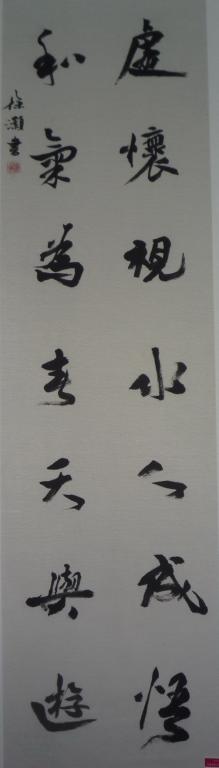 虛懷視水人成悟
和氣為春天與遊
徐灝書